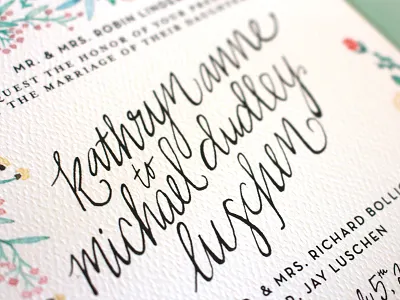 MR. & MRS. ROBIN
THE HONOR OF YOUR
THE MARRIAGE OF THEIR DAUGHTER
kathryn anne
to
michael dudley
luschen
& MRS. RICHARD
JAY LUSCHEN